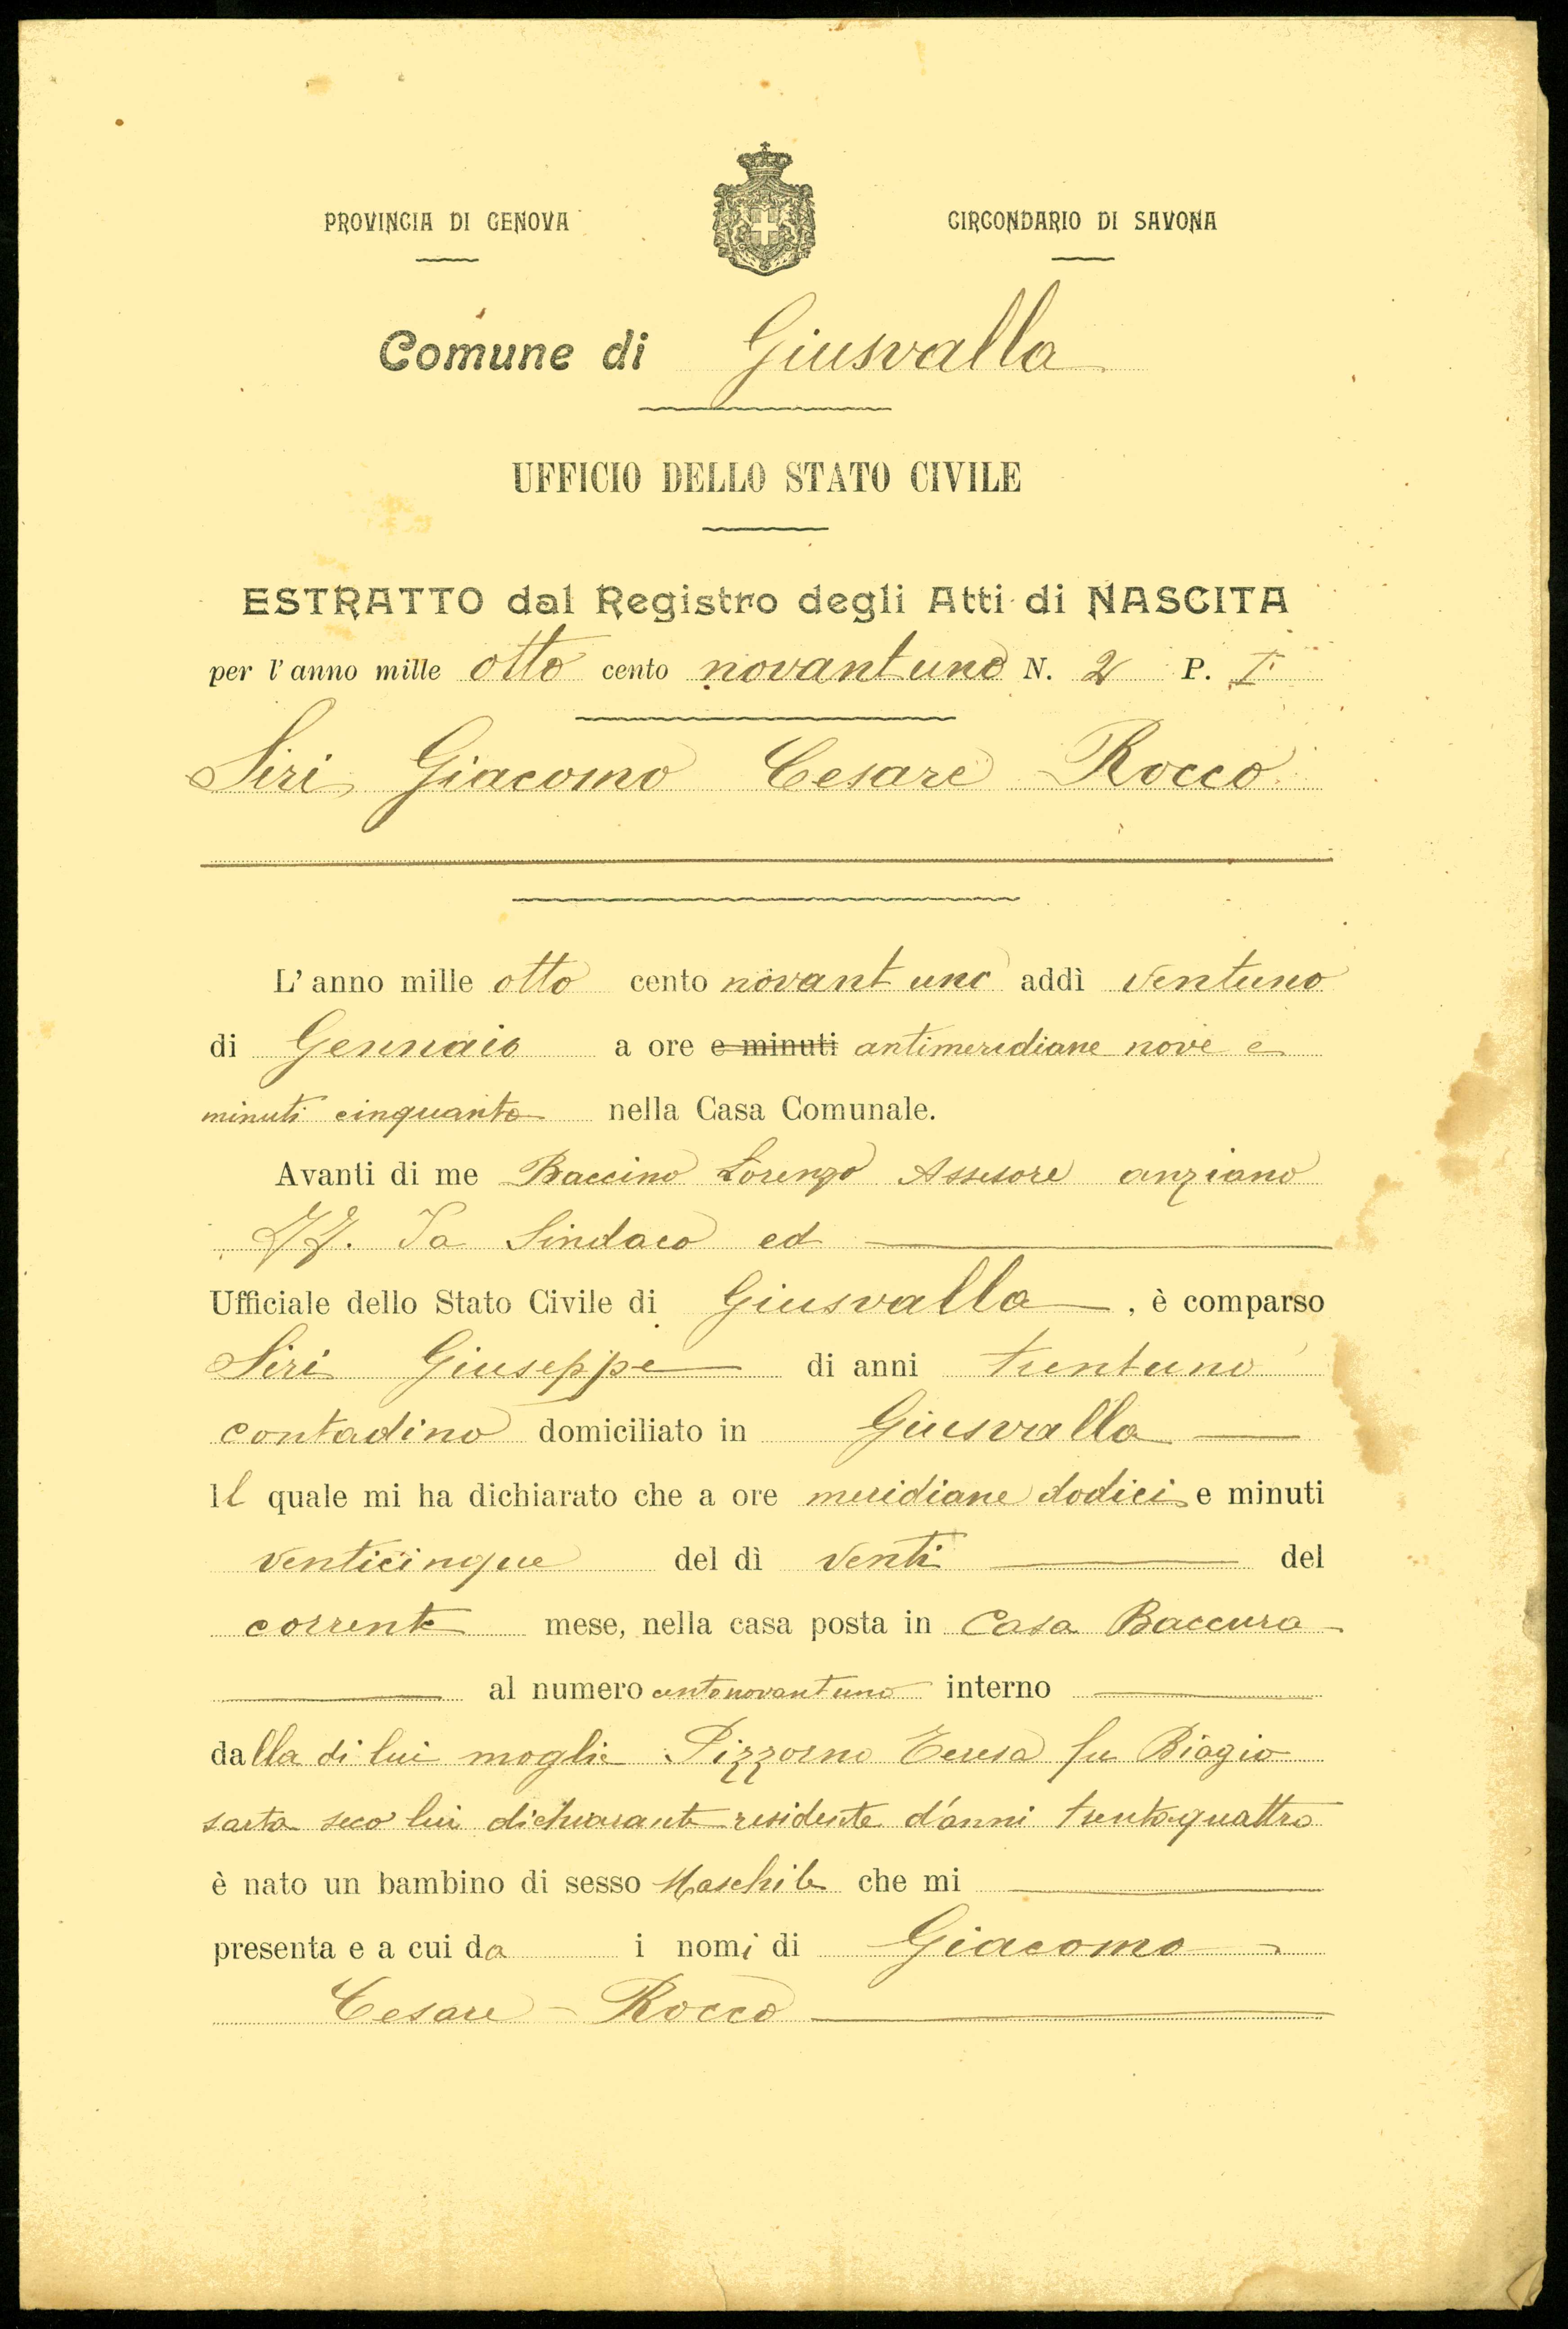 PROVINCIA DI GENOVA
CIRCONDARIO DI SAVONA
Comune di Giusvalla
UFFICIO DELLO STATO CIVILE
ESTRATTO dal Registro degli Atti di NASCITA
per l'anno mille otto cento novantuno N. 2 P. I
Siri Giacomo Cesare Rocco
L'anno mille otto cento novantuno addì ventuno
di Gennaio a ore e minuti antimeridiane nove e
minuti cinquanta nella Casa Comunale.
Avanti di me Baccino Lorenzo Assesore anziano
FF. Da Sindaco ed
Ufficiale dello Stato Civile di Giusvalla, è comparso
Siri Giuseppe di anni trentuno
contadino domiciliato in Giusvalla
Il quale mi ha dichiarato che a ore meridiane dodici e minuti
venticinque del dì venti del
corrente mese, nella casa posta in Casa Baccura
al numero centonovantuno interno
dalla di lui moglie Pizzorno Teresa fu Biagio
sarta seco lui dichiarante residente d'anni trentaquattro
è nato un bambino di sesso Maschile che mi
presenta e a cui da i nomi di Giacomo
Cesare - Rocco